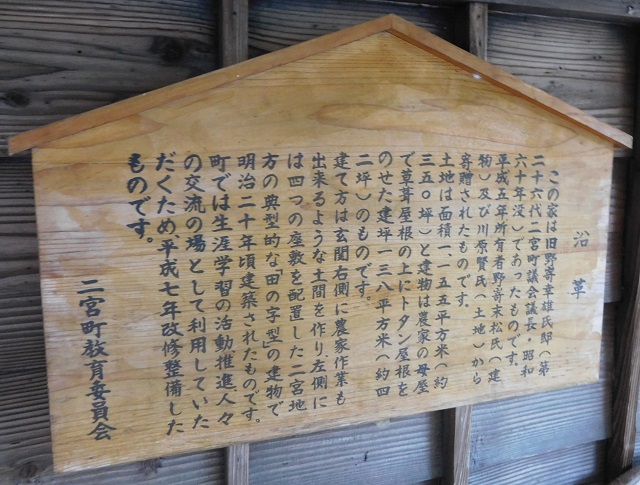 沿革
この家は旧野寄幸雄氏邸(第
二十六代二宮町議会議長・昭和
六十年没)であったものです。
平成五年所有者野寄末松氏(建
物)及び川原賢氏(土地)から
寄贈されたものです。
土地は面積一、一五五平方米(約
三五〇坪)と建物は農家の母屋
で草葺屋根の上にトタン屋根を
のせた建坪一三八平方米(約四
二坪)のものです。
建て方は玄関右側に農家作業も
出来るような土間を作り、左側に
は四つの座敷を配置した二宮地
方の典型的な「田の字型」の建物で
明治二十年頃建築されたものです。
町では生涯学習の活動推進人々
の交流の場として利用していた
だくため、平成七年改修整備した
ものです。
二宮町教育委員会